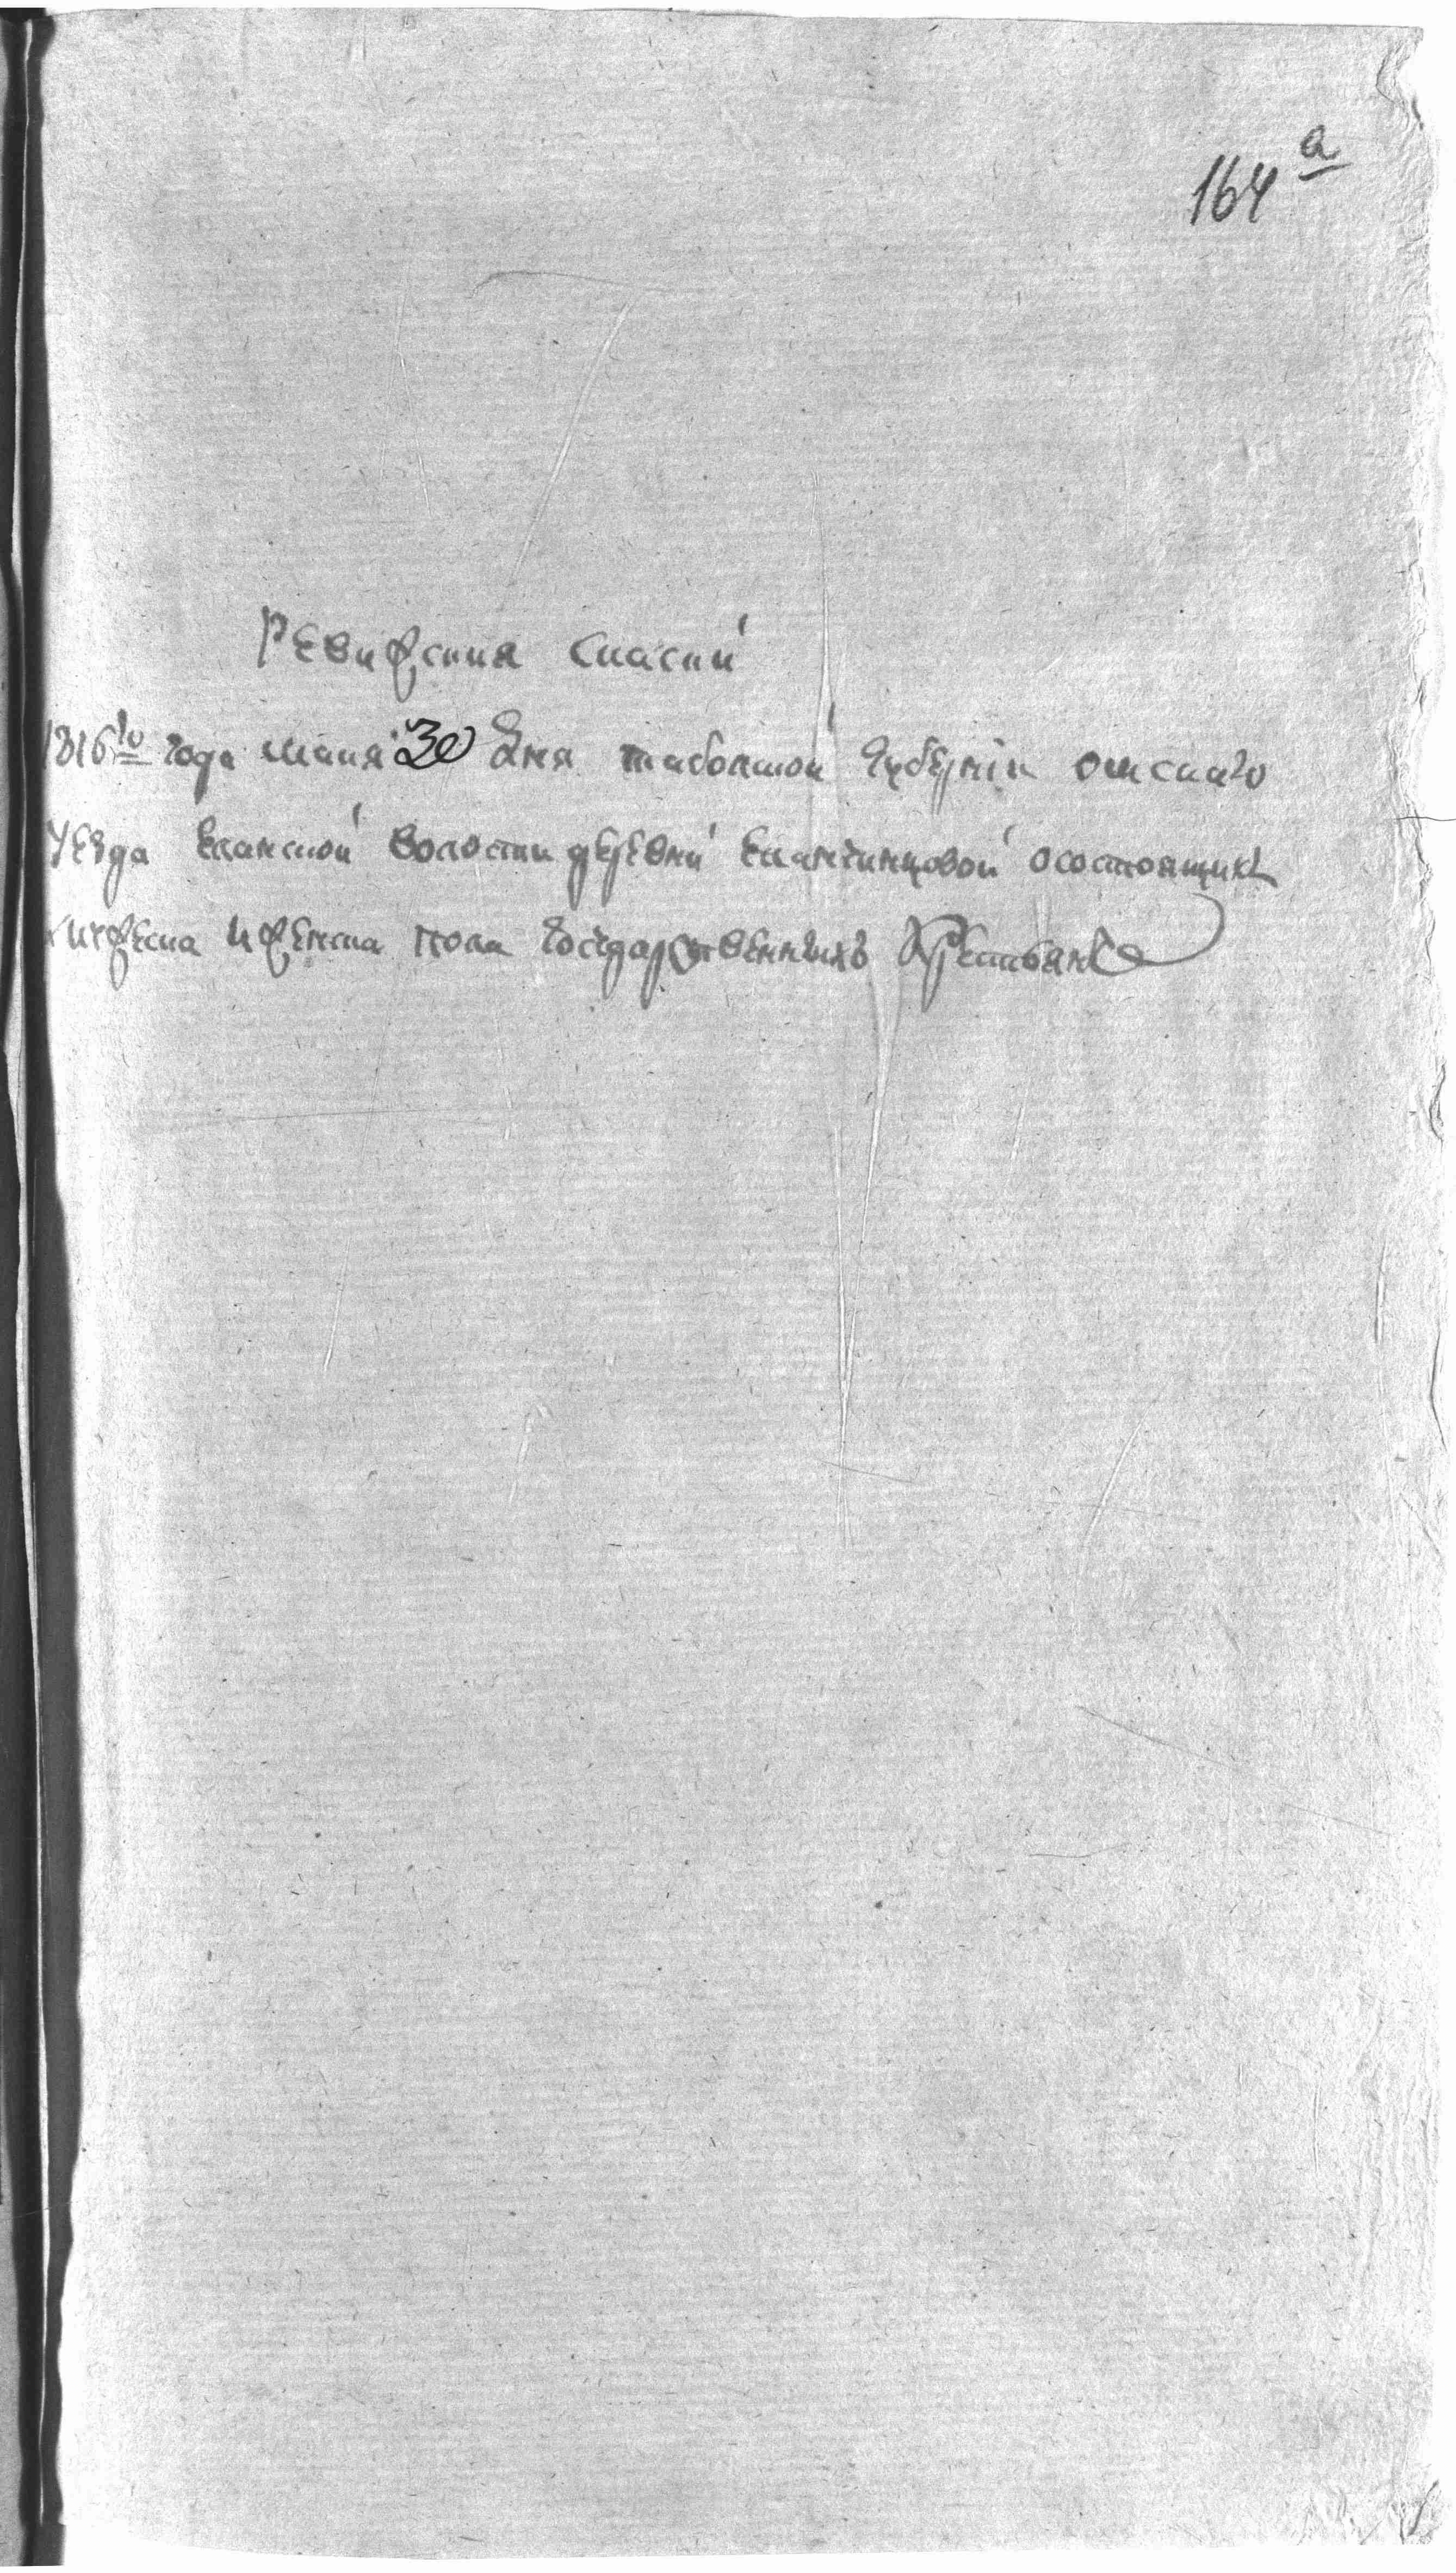 164 а
Ревижския Скаски
1816го года маия 30 дня табольской губернiи омскаго
уезда еланской волости деревни еланчинцовой осостоящихъ
мужеска ижененска пола государственныхъ крестьянъ